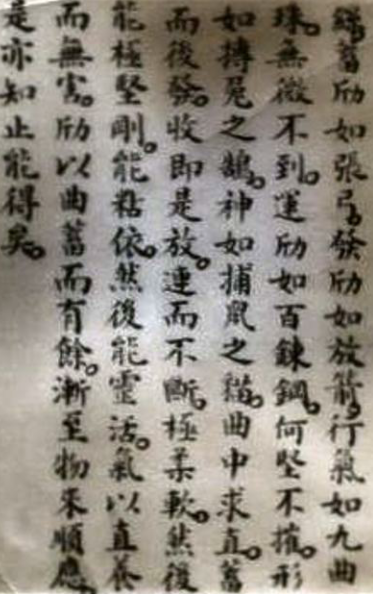 蓄劲如張弓。發劲如放箭。行氣如九曲
珠。無微不到。運劲如百鍊鋼。何堅不摧。形
如搏兔之鵠。神如捕鼠之貓。曲中求直。蓄
而後發。收即是放。連而不斷。極柔軟。然後
能極堅剛。能粘依。然後能靈活。氣以直養
而無害。劲以曲蓄而有餘。漸至物來順應。
是亦知止能得矣。